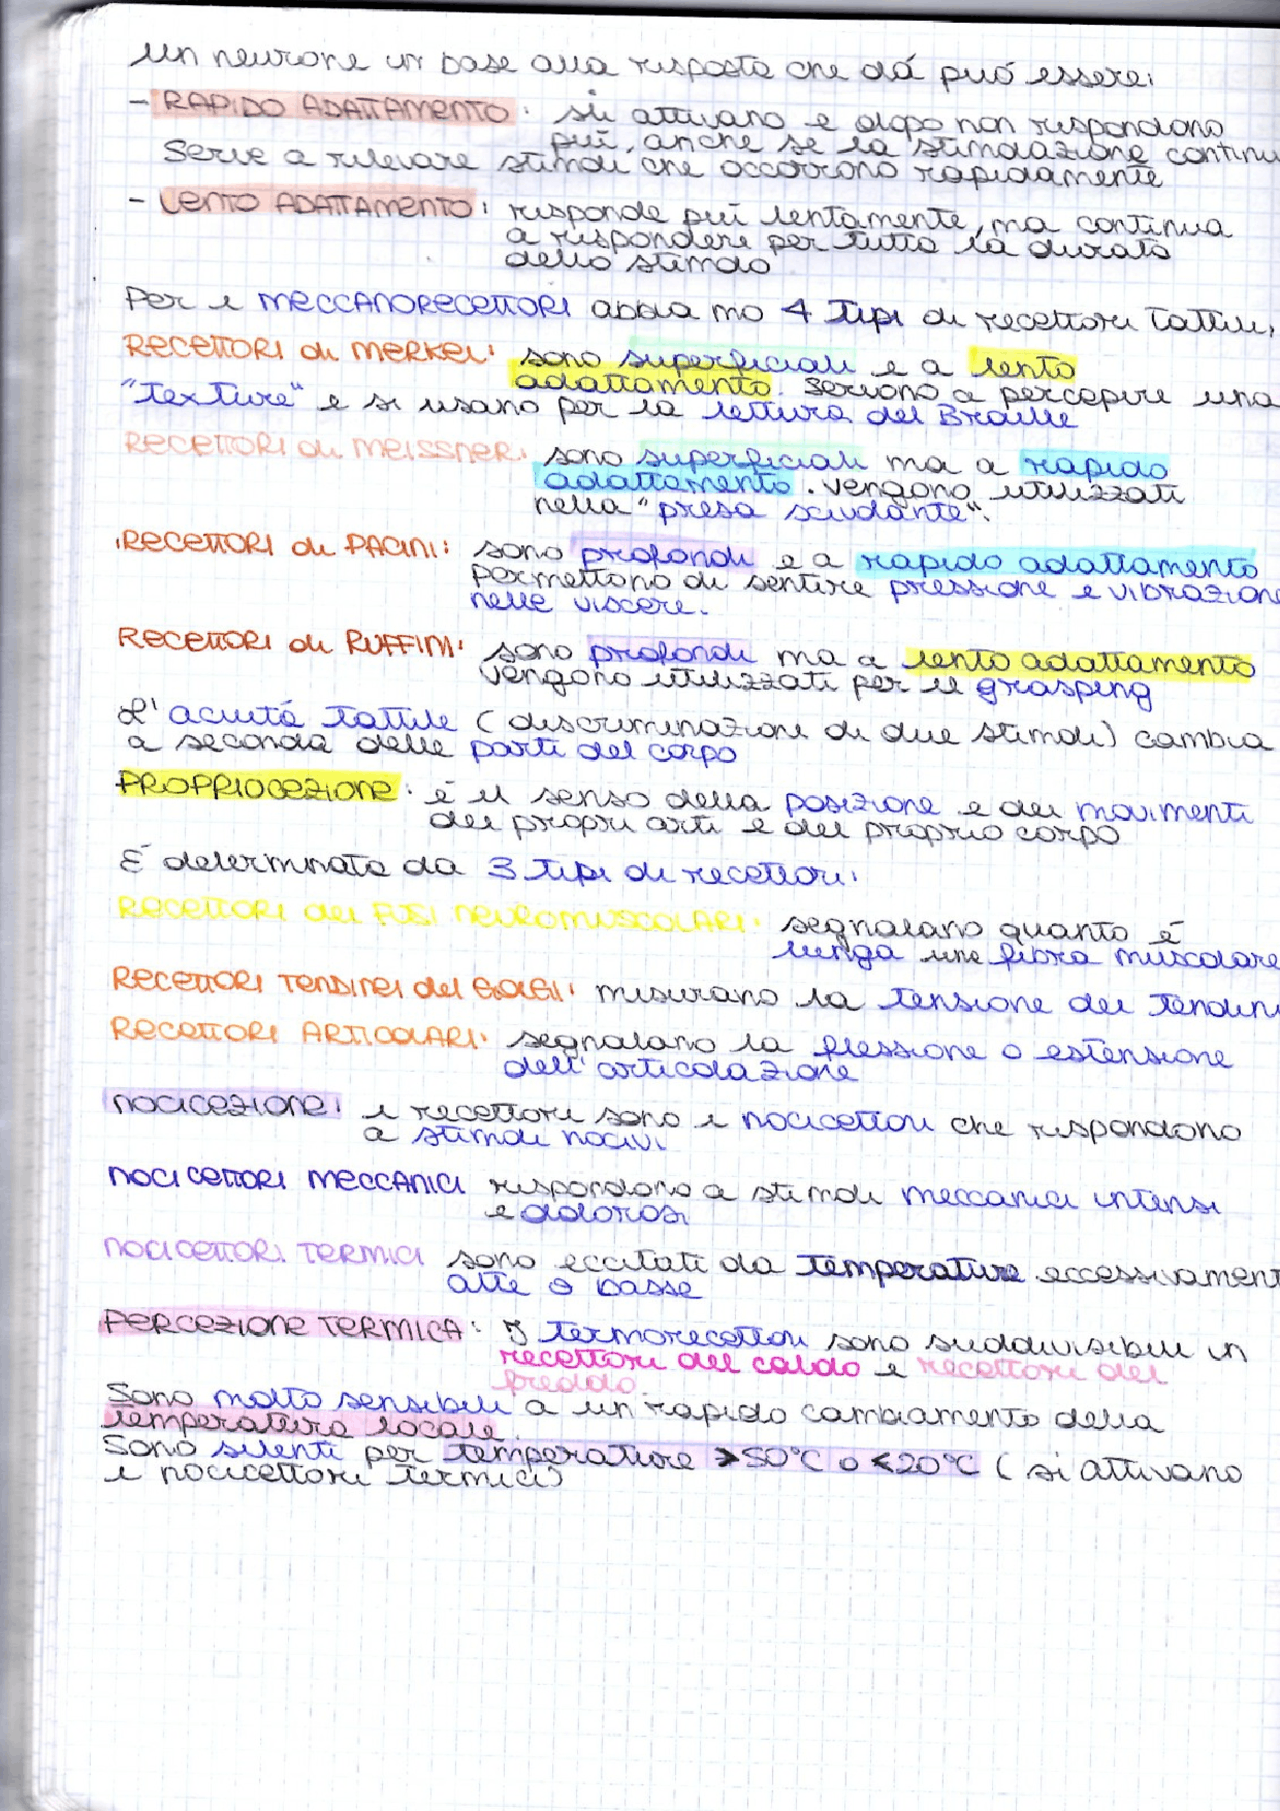 Un neurone in base alla risposta che dá puó essere:
- RAPIDO ADATTAMENTO: si attivano e dopo non rispondono
piú, anche se la stimolazione continu
Serve a rilevare stimoli che occorrono rapidamente
- LENTO ADATTAMENTO: risponde piú lentamente, ma continua
a rispondere per tutta la durata
dello stimolo
Per i MECCANORECETTORI abbiamo 4 tipi di recettori tattili:
RECETTORI di MERKEL: sono superficiali e a lento
adattamento. Servono a percepire una
"texture" e si usano per la lettura del Braille
RECETTORI di MEISSNER: sono superficiali ma a rapido
adattamento. Vengono utilizzati
nella "presa scivolante".
RECETTORI di PACINI: sono profondi e a rapido adattamento
permettono di sentire pressione e vibrazion
nelle viscere.
RECETTORI di RUFFINI: sono profondi ma a lento adattamento
vengono utilizzati per il grasping
L'acuitá tattile (discriminazione di due stimoli) cambia
a seconda delle parti del corpo
PROPRIOCEZIONE: é il senso della posizione e dei movimenti
dei propri arti e del proprio corpo
É determinata da 3 tipi di recettori:
RECETTORI dei FUSI NEUROMUSCOLARI: segnalano quanto é
lunga una fibra muscolare
RECETTORI TENDINEI del GOLGI: misurano la tensione dei tendini
RECETTORI ARTICOLARI: segnalano la flessione o estensione
dell'articolazione
NOCICEZIONE: i recettori sono i nocicettori che rispondono
a stimoli nocivi
NOCICETTORI MECCANICI rispondono a stimoli meccanici intensi
e dolorosi
NOCICETTORI TERMICI sono eccitati da temperature eccessivament
alte o basse
PERCEZIONE TERMICA: I termorecettori sono suddivisibili in
recettori del caldo e recettori del
freddo.
Sono molto sensibili a un rapido cambiamento della
temperatura locale.
Sono silenti per temperature >50°C o <20°C (si attivano
i nocicettori termici)